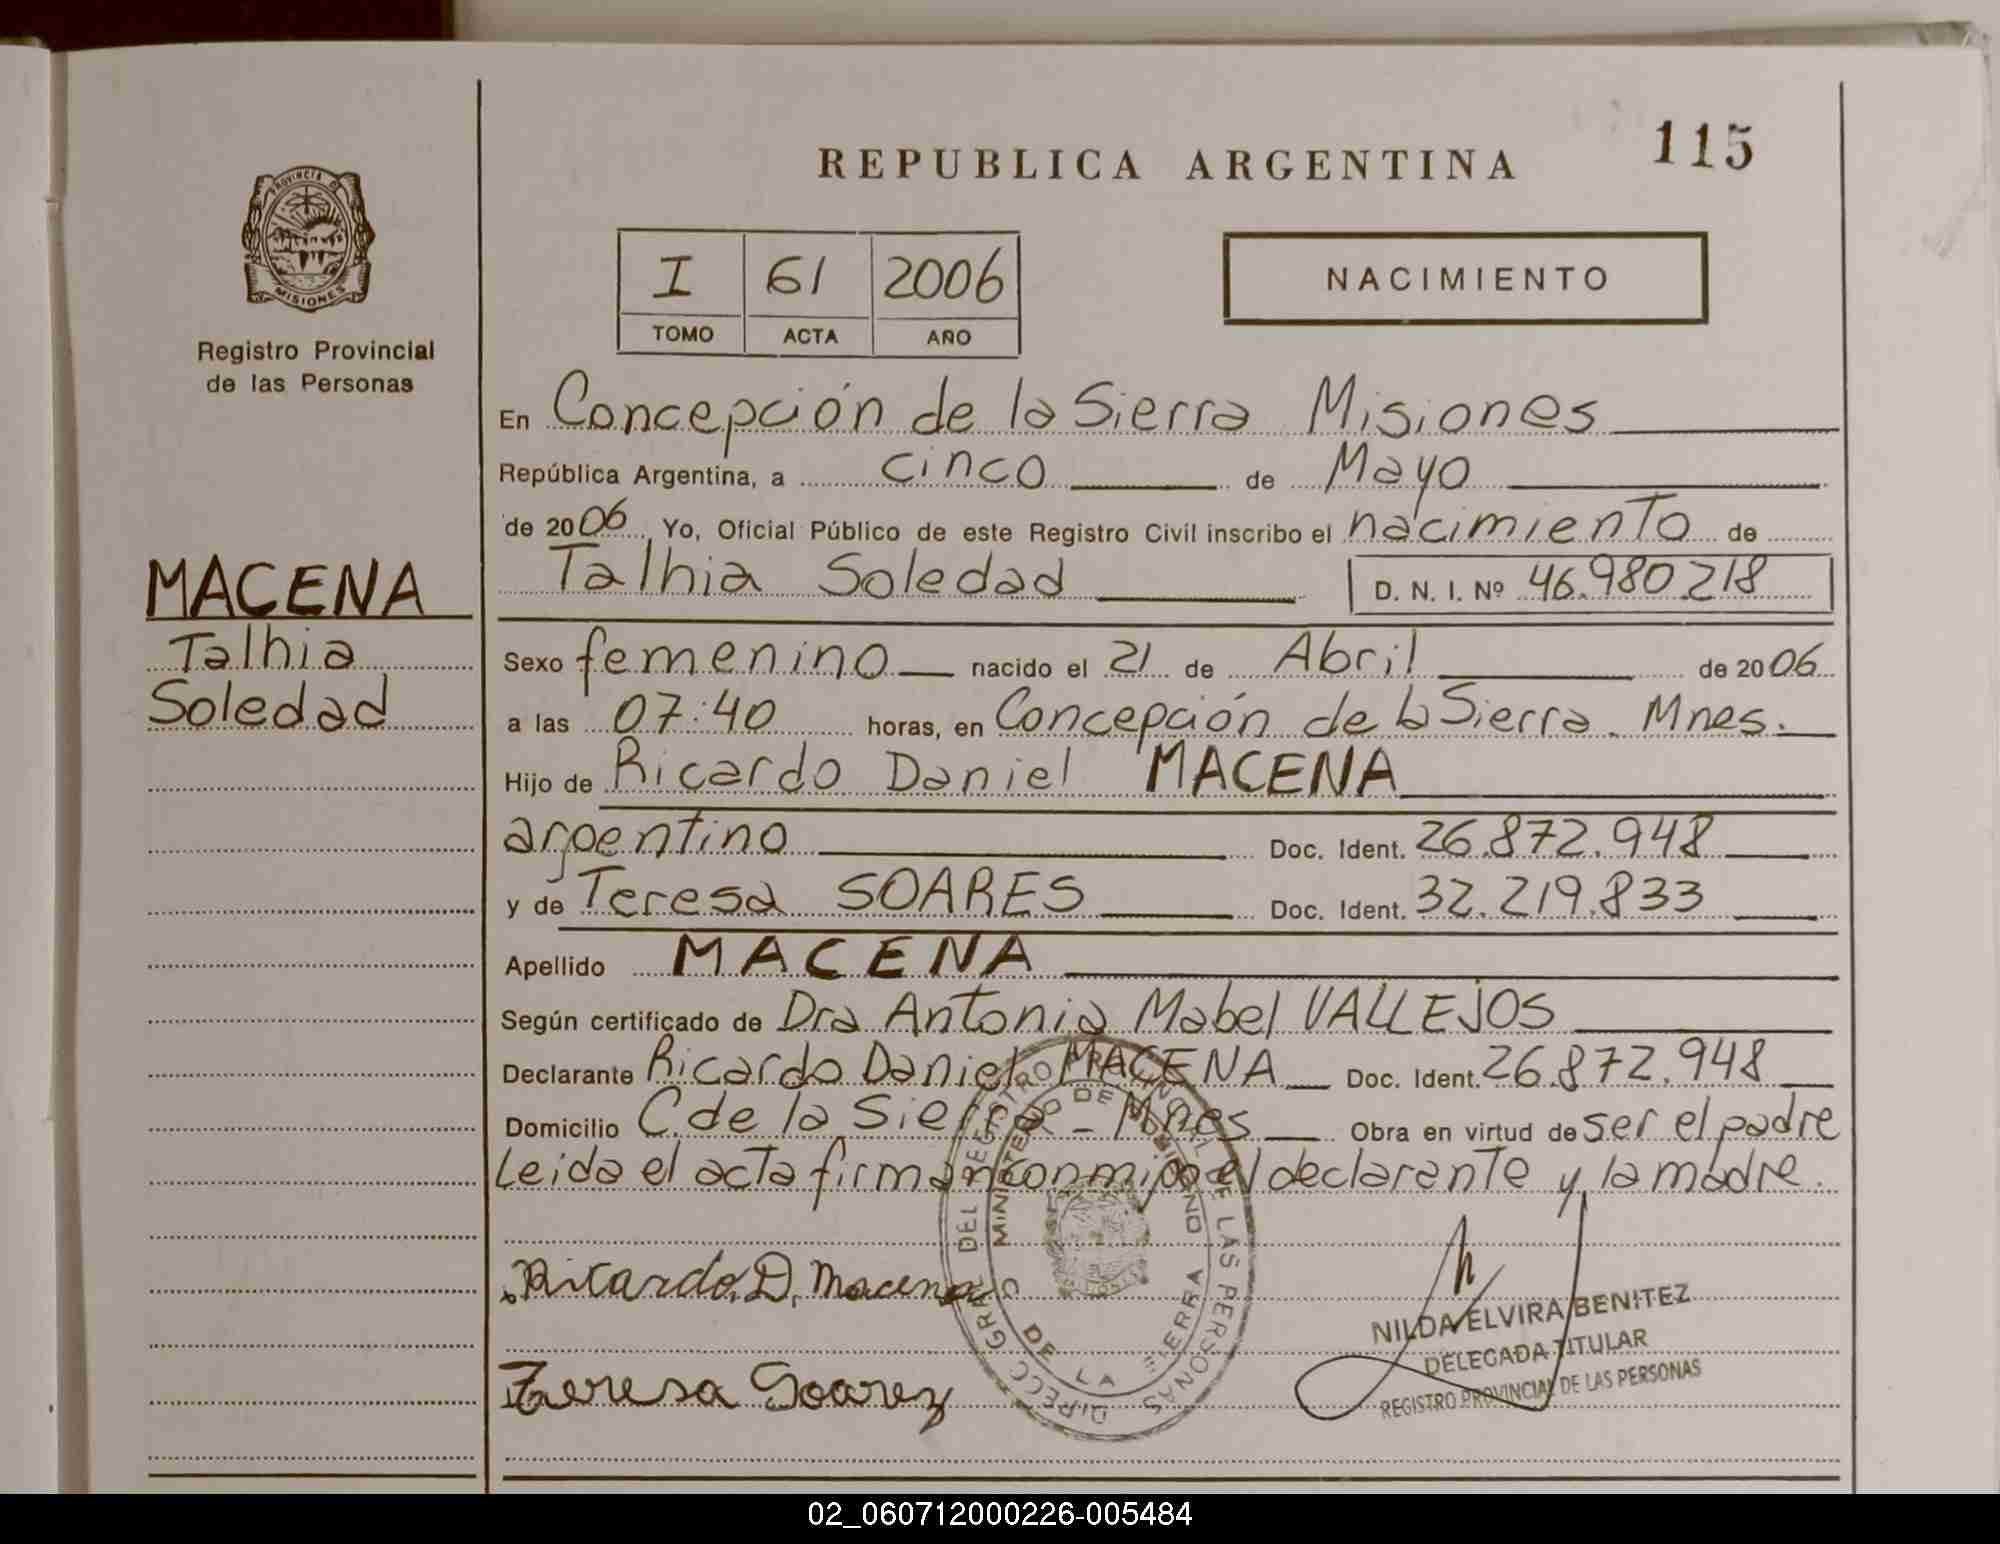 REPUBLICA ARGENTINA
115
PROVINCIA DE
MISIONES
Registro Provincial
de las Personas
I 61 2006
TOMO ACTA AÑO
NACIMIENTO
MACENA
Talhia
Soledad
En Concepción de la Sierra Misiones
República Argentina, a cinco de Mayo
de 2006 Yo, Oficial Público de este Registro Civil inscribo el nacimiento de
Talhia Soledad D. N. I. Nº 46.980.218
Sexo femenino nacido el 21 de Abril de 2006
a las 07:40 horas, en Concepción de la Sierra. Mnes.
Hijo de Ricardo Daniel MACENA
argentino Doc. Ident. 26.872.948
y de Teresa SOARES Doc. Ident. 32.219.833
Apellido MACENA
Según certificado de Dra Antonia Mabel VALLEJOS
Declarante Ricardo Daniel MACENA Doc. Ident. 26.872.948
Domicilio C. de la Sierra - Mnes Obra en virtud de ser el padre
Leida el acta firman conmigo el declarante y la madre.
Ricardo D. Macena
Teresa Soarez
DIRECC GRAL DEL REGISTRO PROVINCIAL DE LAS PERSONAS
MINISTERIO DE GOBIERNO
DE LA SIERRA
NILDA ELVIRA BENITEZ
DELEGADA TITULAR
REGISTRO PROVINCIAL DE LAS PERSONAS
02_060712000226-005484